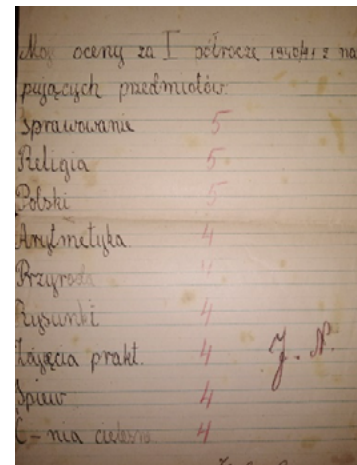 Moje oceny za I półrocze 1940/41 z na
pujących przedmiotów:
Sprawowanie 5
Religia 5
Polski 5
Arytmetyka. 4
Przyroda 4
Rysunki 4
Zajęcia prakt. 4
Śpiew 4
Ć-nia cielesne. 4
J. N.